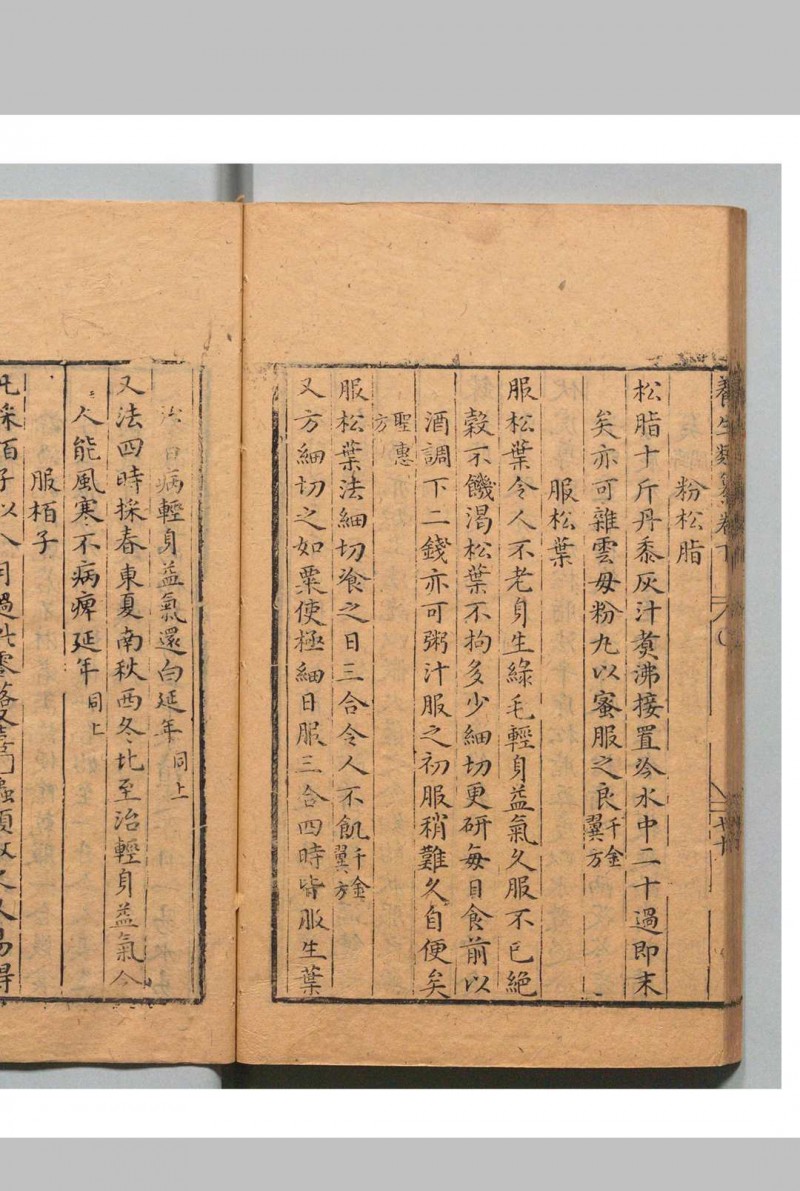 養生類纂卷下
粉松脂
松脂十斤丹黍灰汁煑沸接置冷水中二十過即末
矣亦可雜雲母粉丸以蜜服之良千金翼方
服松葉
服松葉令人不老身生綠毛輕身益氣久服不已絕
穀不饑渴松葉不拘多少細切更研每日食前以
酒調下二錢亦可粥汁服之初服稍難久自便矣
聖惠方
服松葉法細切飡之日三合令人不飢千金翼方
又方細切之如粟使極細日服三合四時皆服生葉
治百病輕身益氣還白延年同上
又法四時採春東夏南秋西冬北至治輕身益氣令
人能風寒不病痺延年同上
服栢子
凡採栢子以八月過此零落又